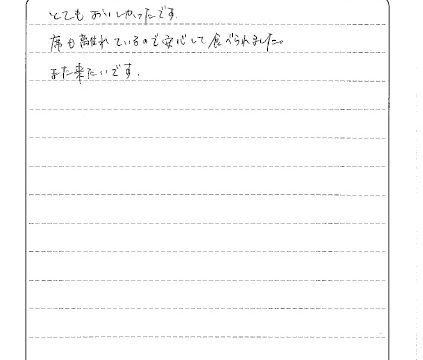 とてもおいしかったです.
席も離れているので安心して食べられました。
また来たいです.